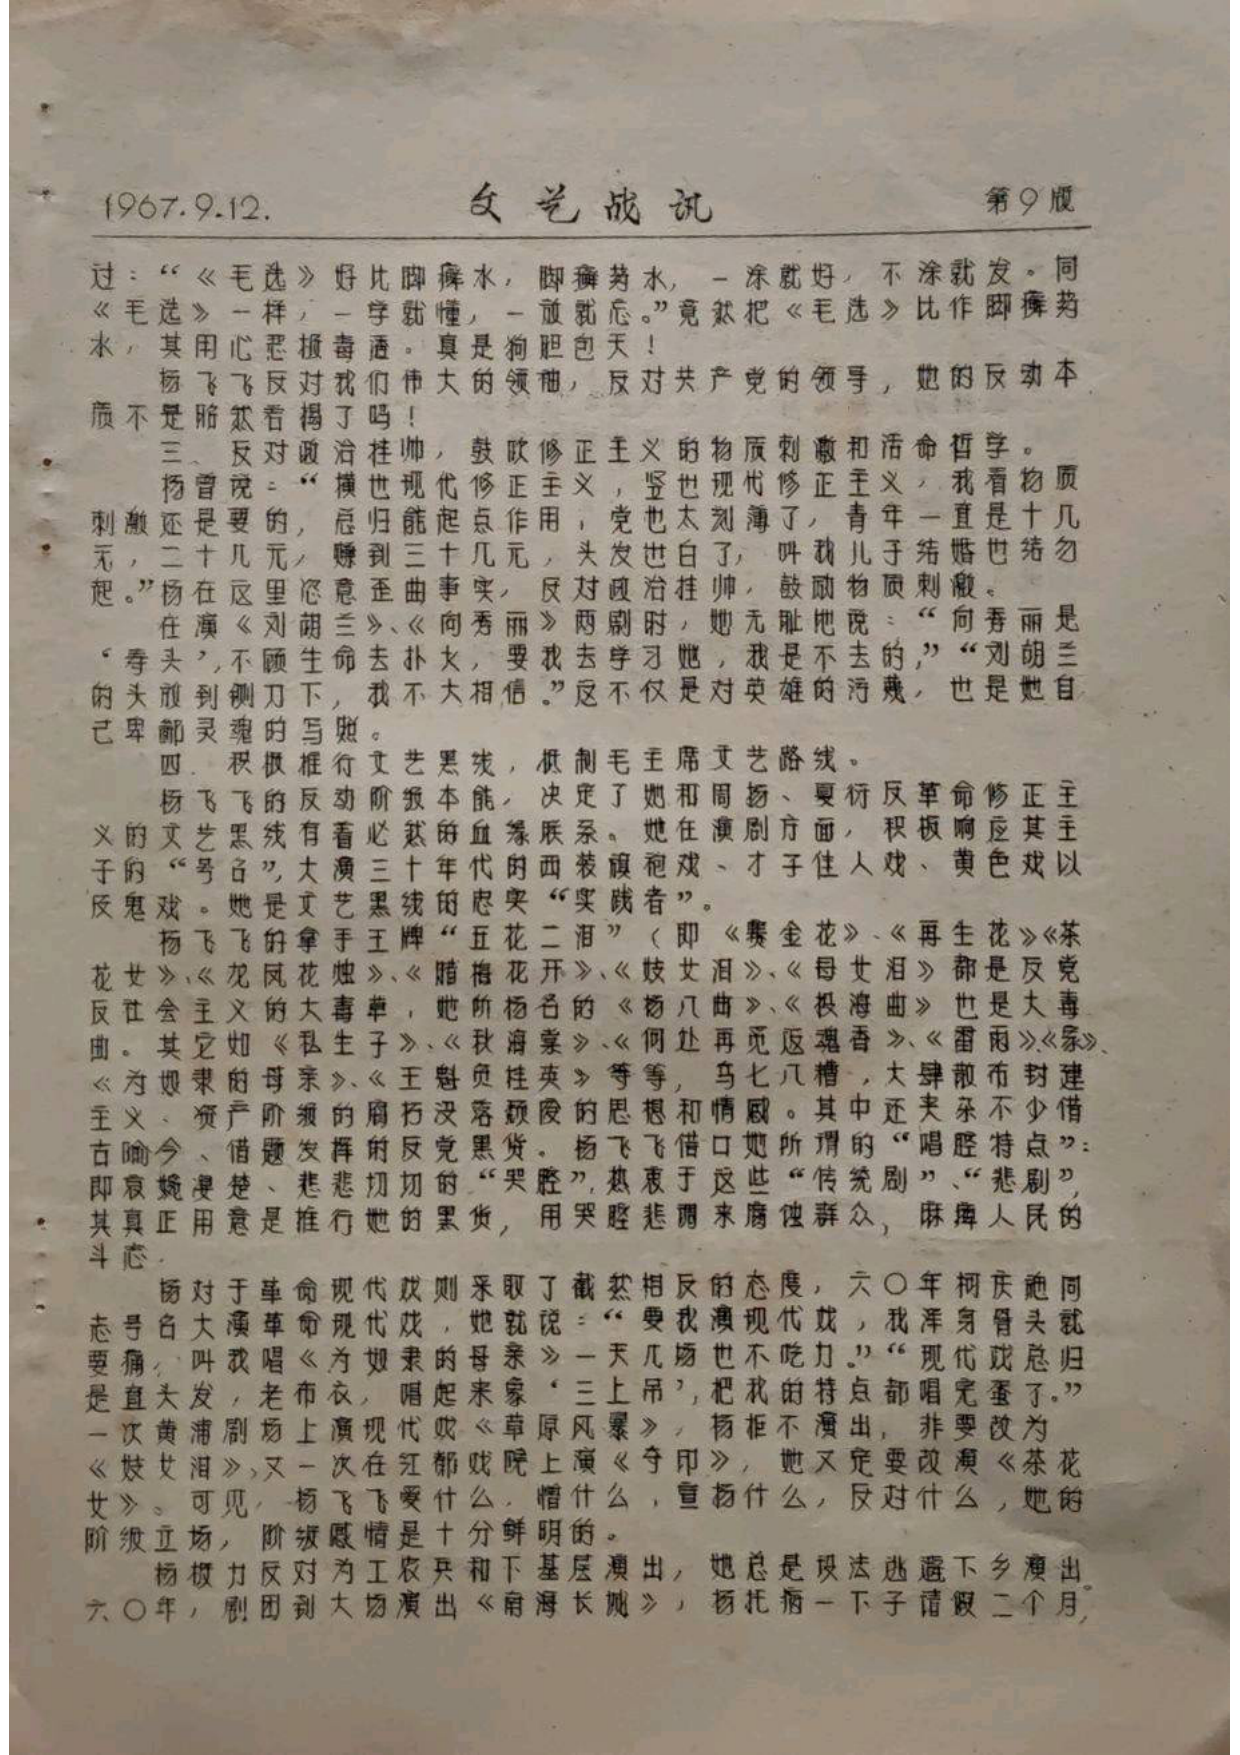 1967.9.12. 文艺战讯 第9版
过：“《毛选》好比脚癣水，脚癣药水，一涂就好，不涂就发。同
《毛选》一样，一学就懂，一放就忘。”竟然把《毛选》比作脚癣药
水，其用心恶极毒透。真是狗胆包天！
杨飞飞反对我们伟大的领袖，反对共产党的领导，她的反动本
质不是昭然若揭了吗！
三、反对政治挂帅，鼓吹修正主义的物质刺激和活命哲学。
杨曾说：“横也现代修正主义，竖也现代修正主义，我看物质
刺激还是要的，总归能起点作用，党也太刻薄了，青年一直是十几
元，二十几元，赚到三十几元，头发也白了，叫我儿子结婚也结勿
起。”杨在这里恣意歪曲事实，反对政治挂帅，鼓励物质刺激。
在演《刘胡兰》、《向秀丽》两剧时，她无耻地说：“向秀丽是
‘寿头’，不顾生命去扑火，要我去学习她，我是不去的，”“刘胡兰
的头放到铡刀下，我不大相信。”这不仅是对英雄的污蔑，也是她自
己卑鄙灵魂的写照。
四．积极推行文艺黑线，抵制毛主席文艺路线。
杨飞飞的反动阶级本能，决定了她和周扬、夏衍反革命修正主
义的文艺黑线有着必然的血缘联系。她在演剧方面，积极响应其主
子的“号召”，大演三十年代的西装旗袍戏、才子佳人戏、黄色戏以
及鬼戏。她是文艺黑线的忠实“实践者”。
杨飞飞的拿手王牌“五花二泪”（即《赛金花》、《再生花》《茶
花女》、《龙凤花烛》、《腊梅花开》、《妓女泪》、《母女泪》都是反党
反社会主义的大毒草，她阶杨名的《杨八曲》、《极海曲》也是大毒
曲。其它如《私生子》、《秋海棠》、《何处再觅返魂香》、《雷雨》、《家》、
《为奴隶的母亲》、《王魁负桂英》等等，乌七八糟，大肆散布封建
主义、资产阶级的腐朽没落颓废的思想和情感。其中还夹杂不少借
古喻今、借题发挥的反党黑货。杨飞飞借口她所谓的“唱腔特点”：
即哀婉凄楚、悲悲切切的“哭腔”，热衷于这些“传统剧”、“悲剧”，
其真正用意是推行她的黑货，用哭腔悲调来腐蚀群众，麻痹人民的
斗志．
杨对于革命现代戏则采取了截然相反的态度，六〇年柯庆施同
志号召大演革命现代戏，她就说：“要我演现代戏，我浑身骨头就
要痛，叫我唱《为奴隶的母亲》一天几场也不吃力。”“现代戏总归
是直头发，老布衣，唱起来象‘三上吊’，把我的特点都唱完蛋了。”
一次黄浦剧场上演现代戏《草原风暴》，杨拒不演出，非要改为
《妓女泪》，又一次在红都戏院上演《夺印》，她又定要改演《茶花
女》。可见，杨飞飞爱什么，憎什么，宣扬什么，反对什么，她的
阶级立场，阶级感情是十分鲜明的。
杨极力反对为工农兵和下基层演出，她总是设法逃避下乡演出。
六〇年，剧团到大场演出《南海长城》，杨托病一下子请假二个月，